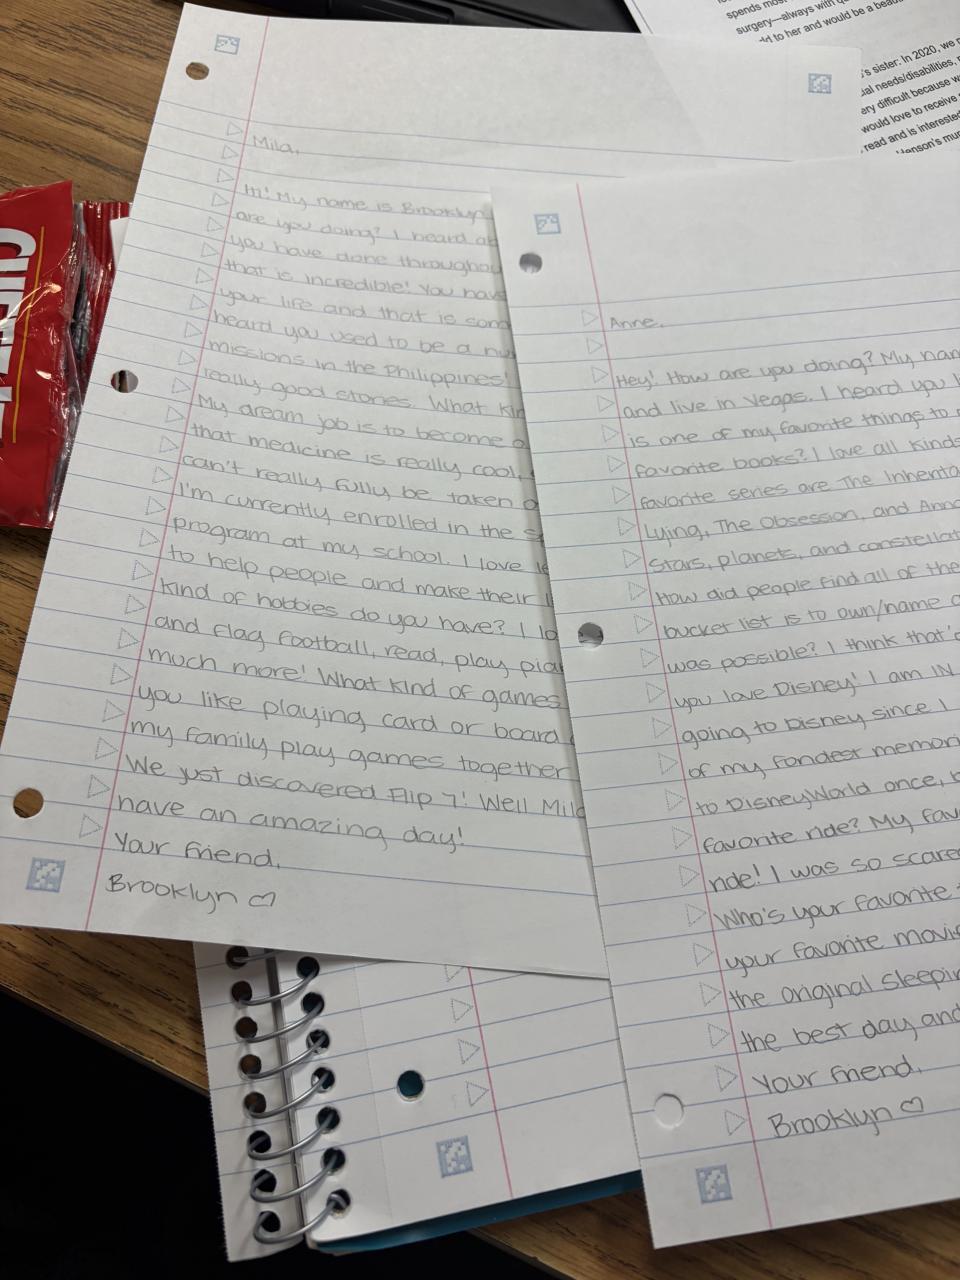 spends most
surgery—always with
to her and would be a
's sister: In 2020, we
needs/disabilities,
very difficult because
would love to receive
read and is interested
Henson's
Mila,
Hi! My name is Brooklyn!
are you doing? I heard
you have done throughou
that is incredible! You have
your life and that is
heard you used to be a
missions in the Philippines!
really good stories. What
My dream job is to become
that medicine is really cool,
can't really fully be taken
I'm currently enrolled in the
program at my school. I love
to help people and make their
kind of hobbies do you have? I
and flag football, read, play
much more! What kind of games
you like playing card or board
my family play games together
We just discovered Flip 7! Well
have an amazing day!
Your friend,
Brooklyn ♡
Anne,
Hey! How are you doing? My
and live in Vegas. I heard you
is one of my favorite things to
favorite books? I love all kinds
favorite series are The
Lying, The Obsession, and
stars, planets, and
How did people find all of the
bucket list is to own/name
was possible? I think
you love Disney! I am IN
going to Disney since I
of my fondest
to DisneyWorld once,
favorite ride? My
ride! I was so
Who's your favorite
your favorite
the original
the best day and
Your friend,
Brooklyn ♡